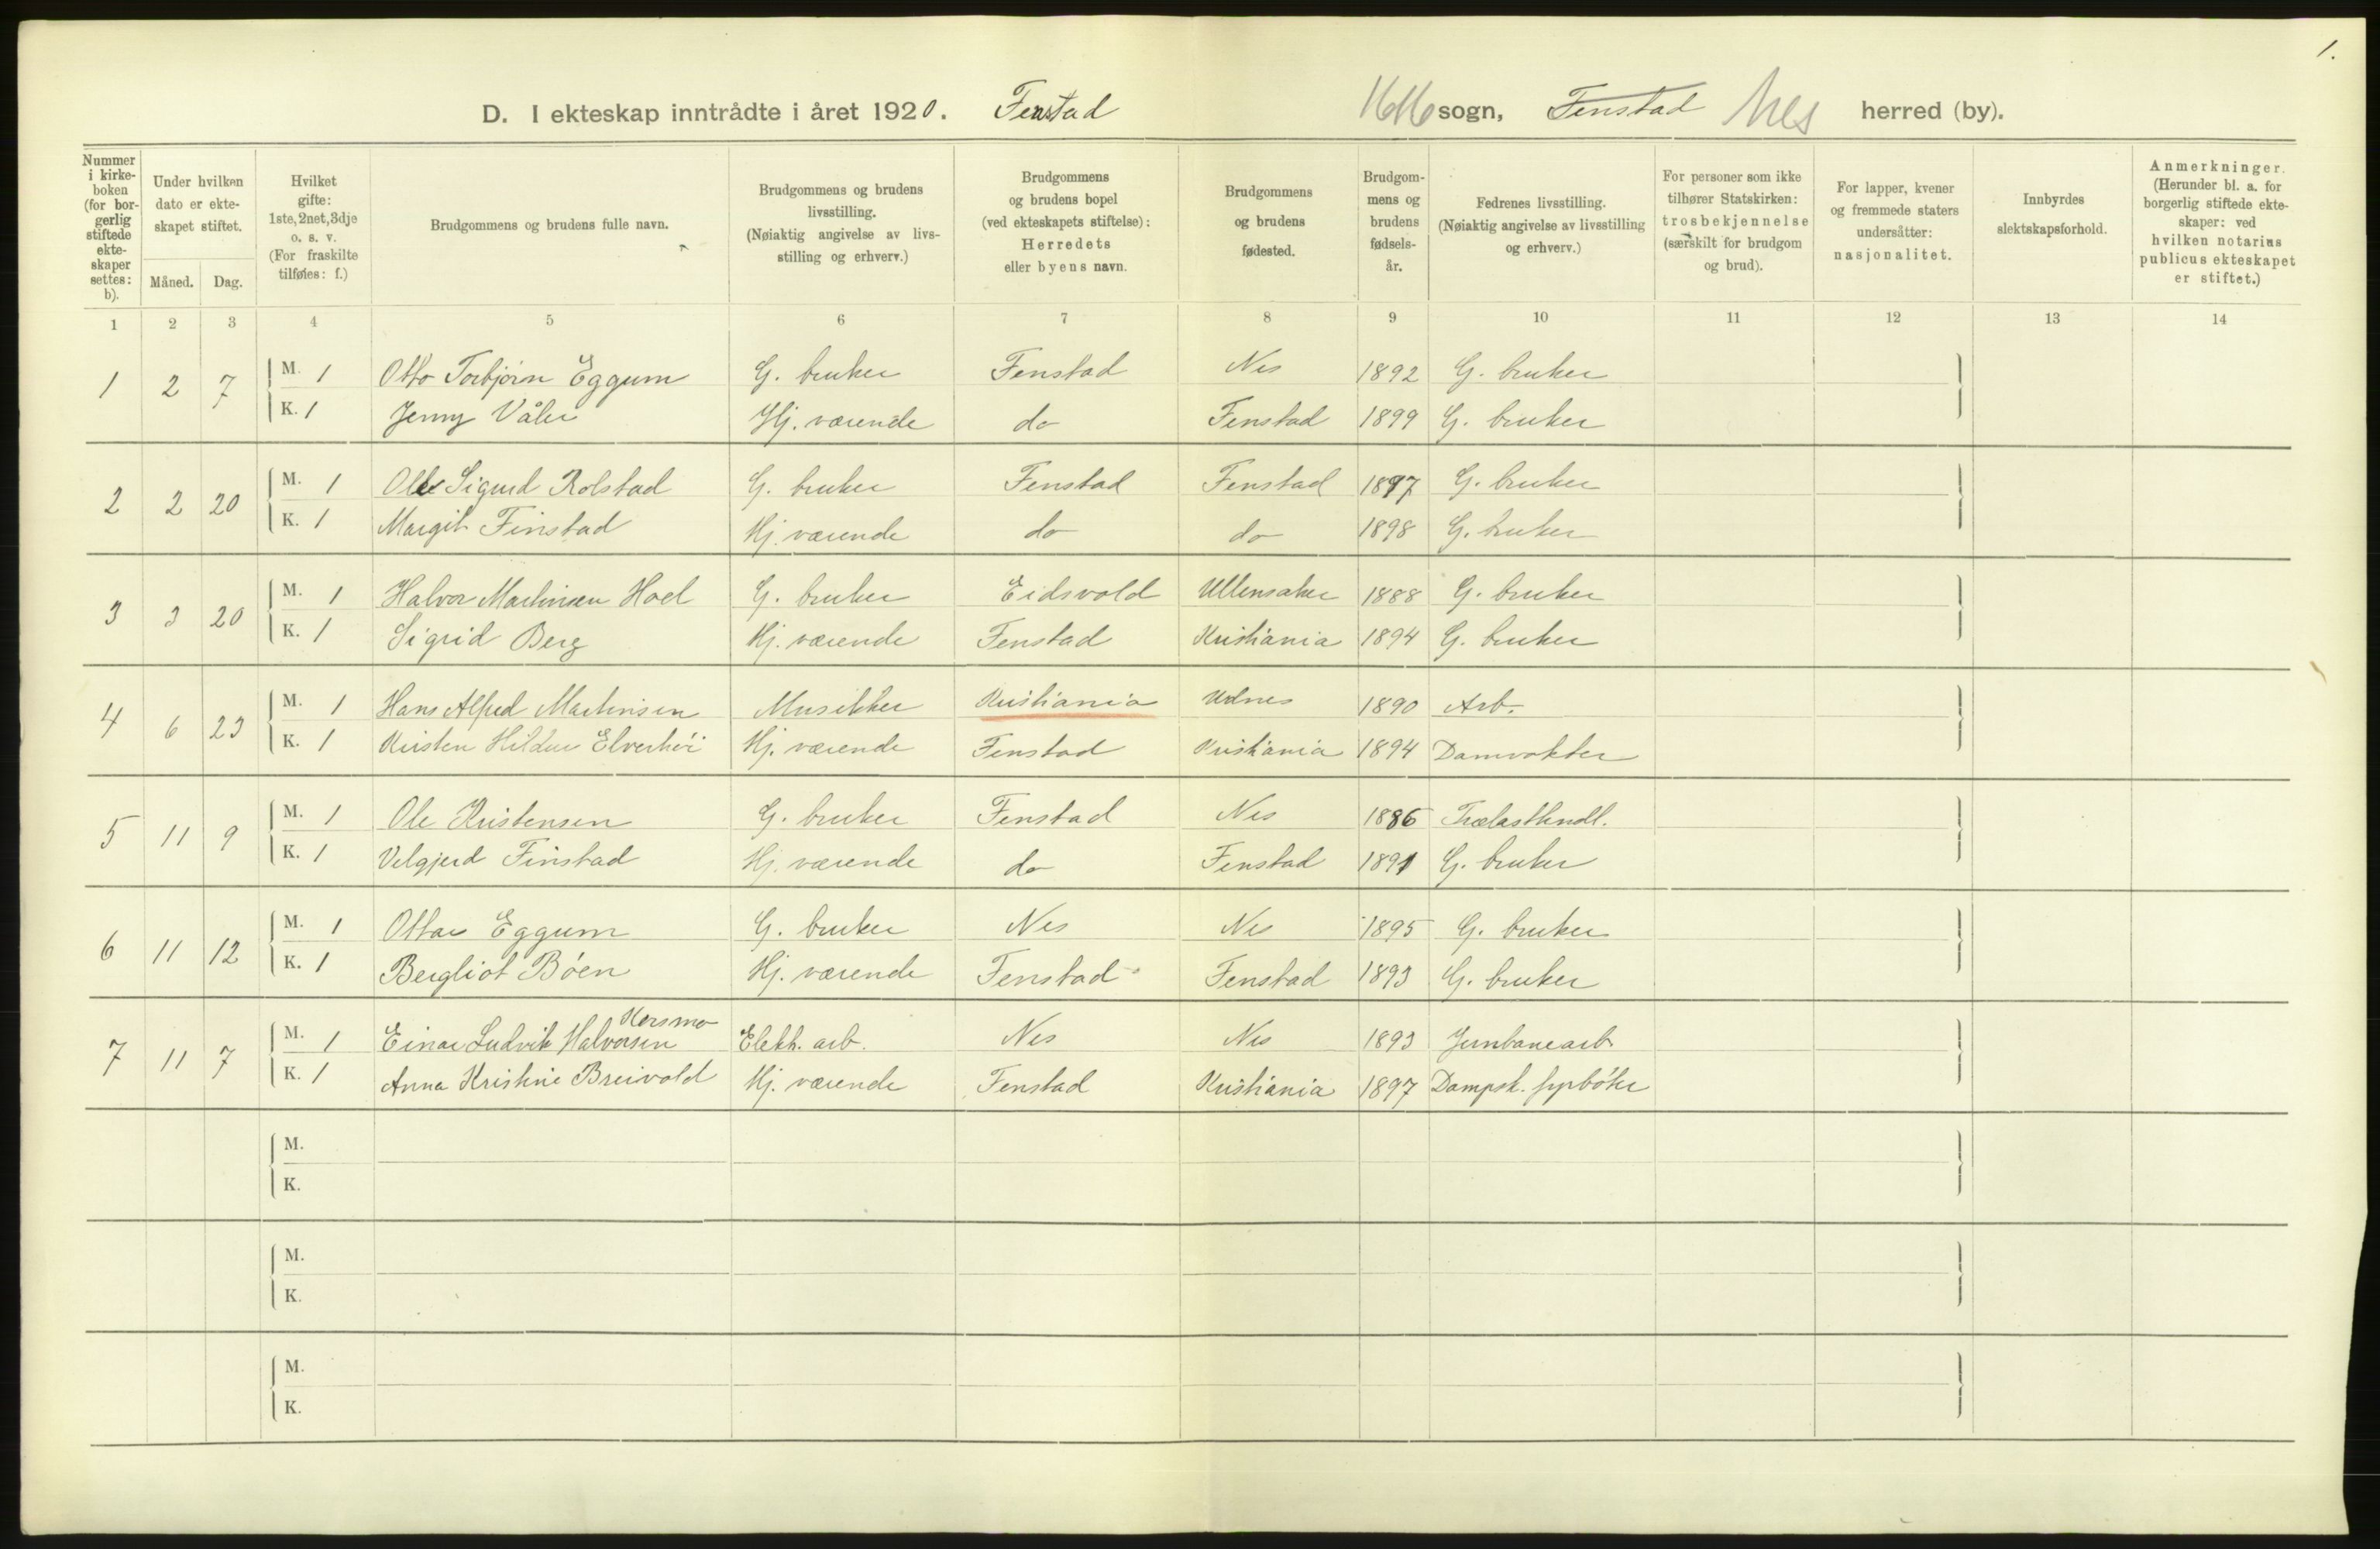 1.
D. I ekteskap inntrådte i året 1920. Fenstad sogn, Fenstad Nes herred (by).
Nummer i kirkeboken (for borgerlig stiftede ekteskaper settes: b).
Under hvilken dato er ekteskapet stiftet.
Måned. Dag.
Hvilket gifte: 1ste, 2net, 3dje o. s. v. (For fraskilte tilføies: f.)
Brudgommens og brudens fulle navn.
Brudgommens og brudens livsstilling. (Nøiaktig angivelse av livsstilling og erhverv.)
Brudgommens og brudens bopel (ved ekteskapets stiftelse): Herredets eller byens navn.
Brudgommens og brudens fødested.
Brudgommens og brudens fødselsår.
Fedrenes livsstilling. (Nøiaktig angivelse av livsstilling og erhverv.)
For personer som ikke tilhører Statskirken: trosbekjennelse (særskilt for brudgom og brud).
For lapper, kvener og fremmede staters undersåtter: nasjonalitet.
Innbyrdes slektskapsforhold.
Anmerkninger. (Herunder bl. a. for borgerlig stiftede ekteskaper: ved hvilken notarius publicus ekteskapet er stiftet.)
1 2 3 4 5 6 7 8 9 10 11 12 13 14
1 2 7 M. 1 Otto Torbjørn Eggum G. bruker Fenstad Nes 1892 G. bruker
K. 1 Jenny Våler Hj. værende do Fenstad 1899 G. bruker
2 2 20 M. 1 Ole Sigurd Rolstad G. bruker Fenstad Fenstad 1897 G. bruker
K. 1 Margit Finstad Hj. værende do do 1898 G. bruker
3 3 20 M. 1 Halvor Martinsen Hoel G. bruker Eidsvold Ullensaker 1888 G. bruker
K. 1 Sigrid Berg Hj. værende Fenstad Kristiania 1894 G. bruker
4 6 23 M. 1 Hans Alfred Martinsen Musikker Kristiania Udnes 1890 Arb.
K. 1 Kristen Hildur Elverhöi Hj. værende Fenstad Kristiania 1894 Damvokter
5 11 9 M. 1 Ole Kristensen G. bruker Fenstad Nes 1886 Trælasthndl.
K. 1 Velgjerd Finstad Hj. værende do Fenstad 1891 G. bruker
6 11 12 M. 1 Ottar Eggum G. bruker Nes Nes 1895 G. bruker
K. 1 Bergliot Böen Hj. værende Fenstad Fenstad 1893 G. bruker
Korsmo
7 11 7 M. 1 Einar Ludvik Halvorsen Elekh. arb. Nes Nes 1893 Jernbanearb.
K. 1 Anna Kristine Breivold Hj. værende Fenstad Kristiania 1897 Dampsk. fyrböter
M.
K.
M.
K.
M.
K.